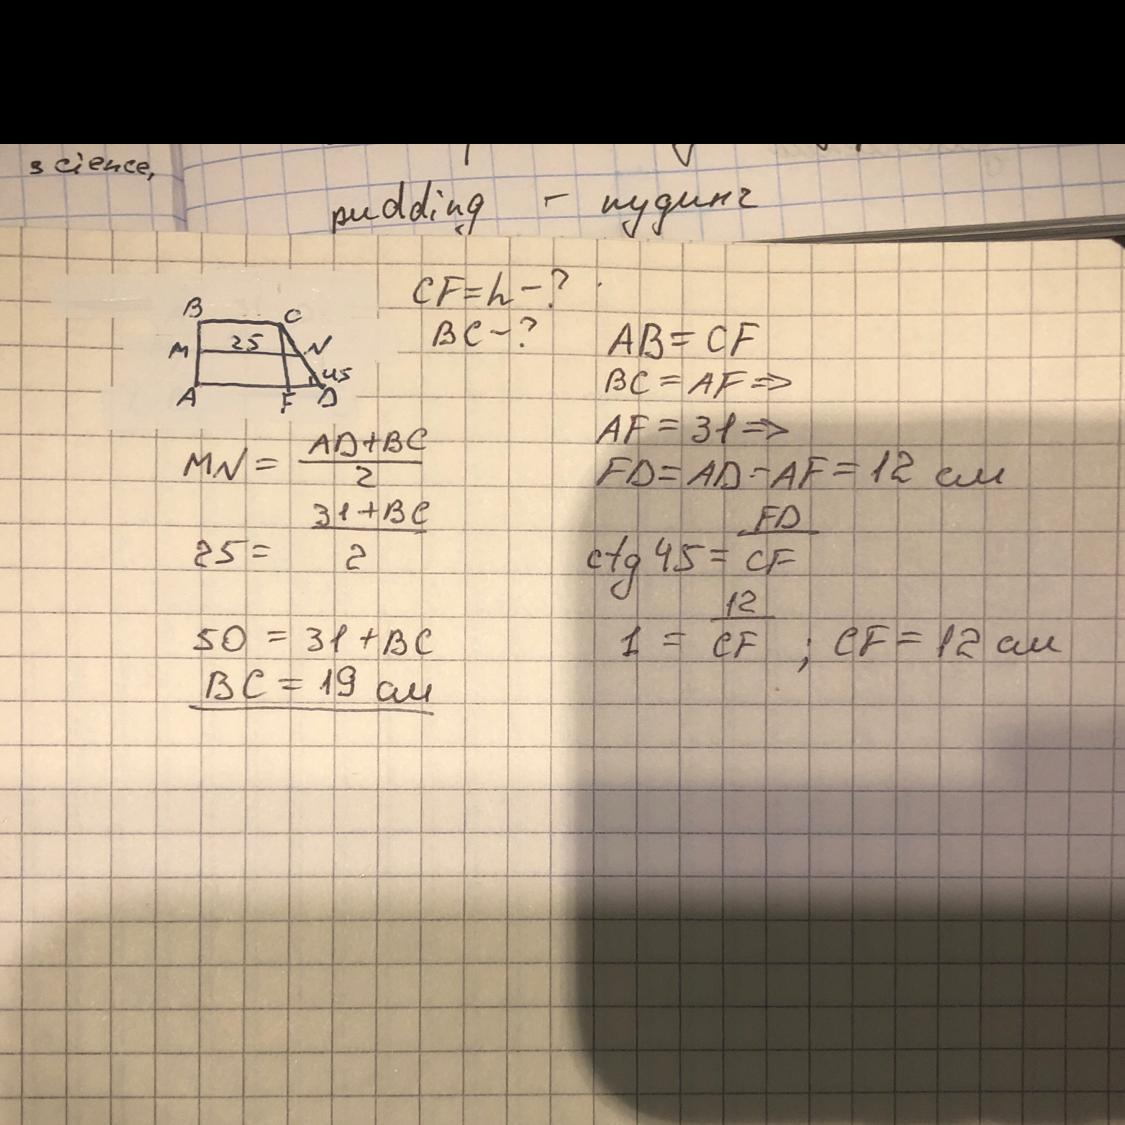 science,
pudding - пудинг
CF=h-?
BC-?
B C
M 25 N
45
A F D
MN = AD+BC
2
31+BC
25= 2
50 = 31+BC
BC = 19 см
AB= CF
BC = AF =>
AF = 31 =>
FD= AD-AF= 12 см
ctg 45 = FD
CF
1 = 12
CF ; CF= 12 см